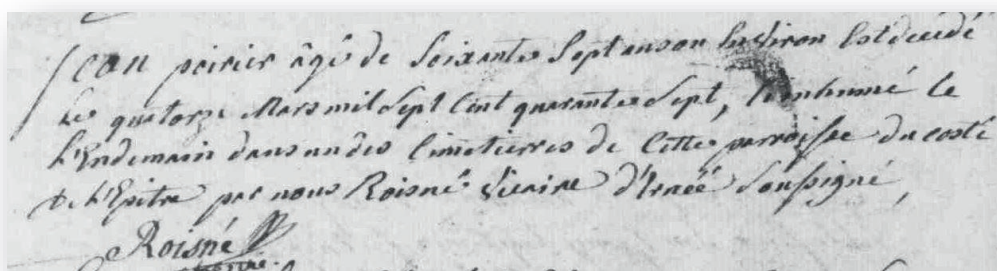 Jean poirier âgé de soixante sept ans ou Environ Est decedé
Le quatorze Mars mil sept Cent quarante sept, Et inhumé le
l'Endemain dans un des Cimetierres de Cette parroisse du costé
de l'Epitre par nous Roisné Vicaire d'Ernéé soussigné,
Roisné